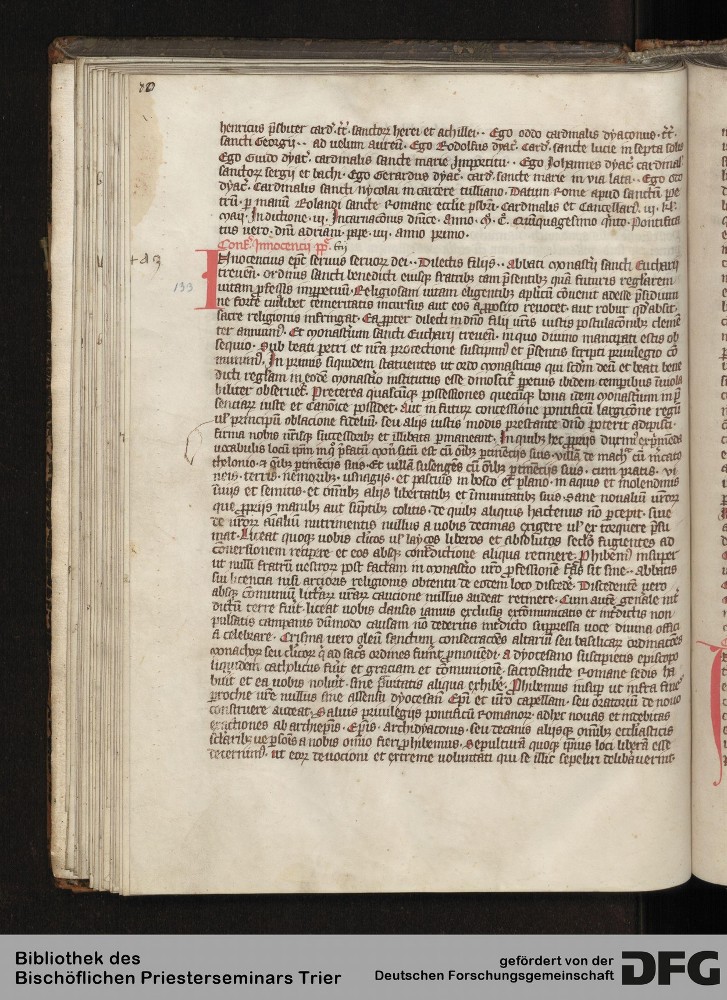 henricus p̄sbiter card̄. tt̄. sanctoꝝ herei et achillei. Ego oddo cardinalis dyaconus. tt̄.
sancti Georgij. ad uelum aureū. Ego Rodolfus dyac̄. Card̄. sancte lucie in septa solis
Ego Guido dyac̄. cardinalis sancte marie Ego Johannes dyac̄. cardinal
sanctoꝝ sergij et bachi. Ego Gerardus dyac̄. card̄. sancte marie in via lata. Ego otto
dyac̄. Cardinalis sancti nycolai in carcere tulliano. Datum Rome apud sanctū pe
trū. ꝑ manū Rolandi sancte Romane ecclīe p̄sbr̄i. Cardinalis et Cancellarij. iij. kl̄.
maij. Indictione. iij. Incarnacōnis dn̄ice. anno. m̄. c̄. Quīquagesimo qīnto. Pontifica
tus uero. dn̄i adriani. pape. iiij. anno primo.
Conf̄. Innocencij. pp̄.
Innocencius ep̄c seruus seruoꝝ dei. Dilectis filijs. abbati monasterij sancti Eucharij
treueñ. ordinis sancti benedicti eiusqꝫ fratribꝫ tam p̄sentibꝫ quā futuris regularem
uitam ꝓfessis inꝑpetuū. Religiosam uitam eligentibꝫ aplicū cōuenit adesse p̄sidium
ne forte cuiuslibet temeritatis incursus aut eos a ꝓposito reuocet. aut robur qd̄ absit.
sacre religionis infringat. Ea ꝓpter dilecti in dn̄o filij ur̄is iustis postulacōnibꝫ cleme
ter annuimꝰ. Et monasterium sancti Eucharij treueñ. in quo diuino mancipati estis ob
sequio. Sub beati petri et nr̄a protectione suscipimꝰ et p̄sentis scripti priuilegio cō
munimꝰ. In primis siquidem statuentes ut ordo monasticus qui scd̄m deū et beati bene
dicti reglam in eodē monasterio institutus esse dinoscit̄ ꝑpetuis ibidem temporibꝫ inuiola
biliter obseruet̄. Preterea quascūqꝫ possessiones quecūqꝫ bona idem monasterium in p̄
senciarū iuste et canonice possidet. Aut in futurū concessione pontificū largicōne regū
ul̄ principū oblacione fidelium. seu alijs iustis modis prestante dn̄o poterit adipisci.
firma nobis ur̄isqꝫ successoribꝫ et illibata ꝑmaneant. In quibꝫ hec ꝓprijs duximꝰ exprimēda
uocabulis locū ip̄m in quo p̄fatū mon̄ situm est cū oībꝫ ꝑtinēcijs suis. uillā de mach cū mercato
thelonio. ⁊ oībꝫ ꝑtinēcijs suis. Et uillā cū oībꝫ ꝑtinēcijs suis. cum pratis. vi
neis. terris. nemoribꝫ. usuagijs. et pascuis in bosco et plano. in aquis et molendinis
in uijs et semitis. et oīnibꝫ alijs libertatibꝫ et īmunitatibꝫ suis. Sane noualiū ur̄oꝝ
que ꝓprijs manibꝫ aut sūptibꝫ colitis. de quibꝫ aliquis hactenus nō ꝑcepit. Siue
de ur̄oꝝ aīalium nutrimentis nullus a uobis decimas exigere ul̄ extorquere p̄su
mat. Liceat quoqꝫ uobis clericos ul̄ laycos liberos et absolutos seclo fugientes ad
cōuersionem recipere et eos absqꝫ contrādictione aliqua retinere. Phibemꝰ insuper
ut nulli fratrū uestroꝝ post factam in monasterio ur̄o ꝓfessionem fas sit sine. abbatis
sui licencia nisi arctioris religionis obtentu de eodem loco discede. Discedentē uero
absqꝫ comuniū litteraꝝ ur̄arū caucione nullus audeat retinere. Cum autē genāle int̄
dictū terre fūit. liceat uobis clausis ianuis exclusis excōmunicatis et int̄dictis non
pulsatis campanis dūmodo causam nō dederitis interdicto suppressa uoce diuina offici
a celebrare. Crisma vero oleū sanctum. consecraciones altariū seu basilicaꝝ. ordinacōes
monachoꝝ seu clicoꝝ qi ad sacros ordines fuerint ꝓmouendi. a dyocesano suscipietis episcopo
siquidem catholicus fūit et graciam et cōmunionē. sacrosancte Romane sedis ha
buit et ea uobis noluit. sine prauitatis aliqua exhibē. Phibemus insuꝑ ut infra fines
parochie ur̄e nullus sine assensu dyocesani Ep̄i et ur̄o capellam. seu oratorium de nouo
construere audeat. Saluis priuilegijs pontificū Romanorꝝ. adhec nouas et indebitas
exactiones ab archiep̄is. Ep̄is. archidyaconis. seu decanis alijsqꝫ oīnibꝫ ecclesiasticis
sclaribꝫ ue ꝑsonis a nobis oīno fieri ꝓhibemus. Sepulturā quoqꝫ ip̄ius loci liberā esse
decernimꝰ. ut eorꝝ deuocioni et extreme voluntati qui se illic sepeliri delibāuerint.
133
Bibliothek des
Bischöflichen Priesterseminars Trier
gefördert von der
Deutschen Forschungsgemeinschaft
DFG